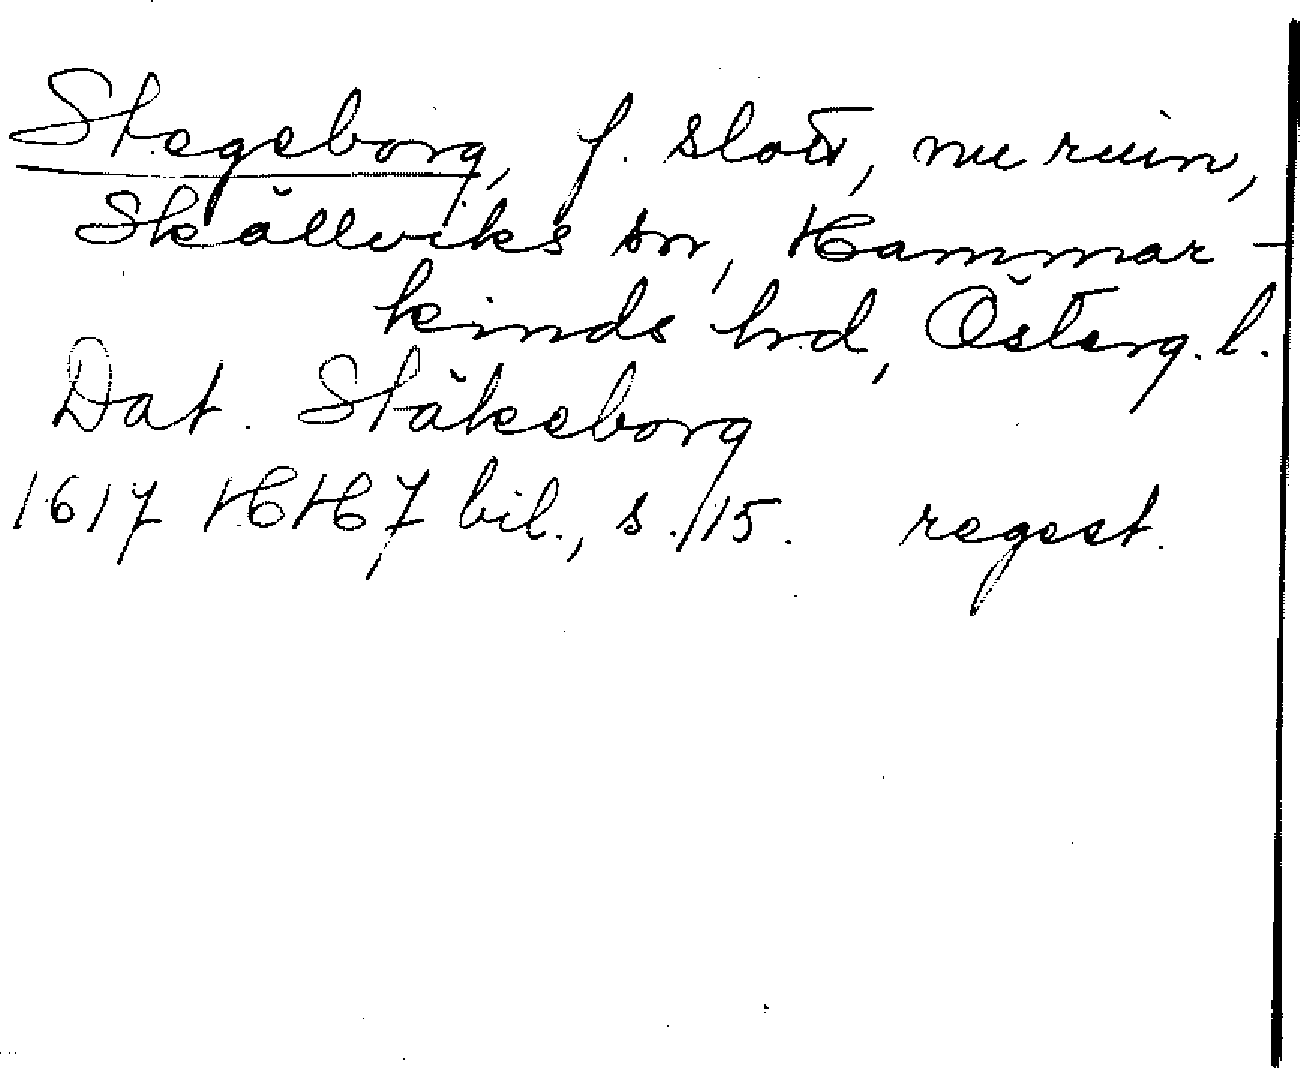 Stegeborg, f. slott, nu ruin,
Skällviks sn, Hammar-
kinds hrd, Österg. l.
Dat. Stäkeborg
1617 HH 7 bil., s. 115. regest.